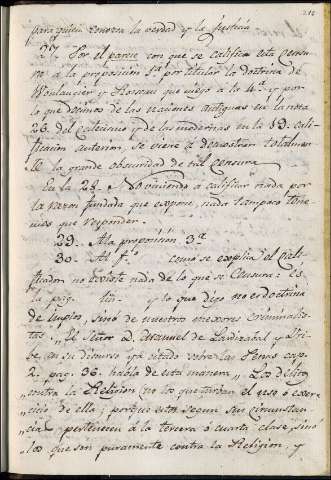 para quien conozca la verdad y la Justicia
27. Por el parece con que se califica esta censu
ra a la proposicion 1ª por titular la doctrina de
y Rousseau que dejo a lo 4º y por
lo que decimos de las naciones antiguas en la nota
23. del catecismo y de las modernas en la 19. cali
ficacion anterior, se viene a demostrar totalmen
te la grande obscuridad de tal censura
En la 28. No viniendo a calificar nada por
la razon fundada que expone, nada tampoco tene
mos que responder.
29. A la proposicion 3ª
30. Al fº como se explica el cali
ficador no existe nada de lo que se censura: es
la pag. lin. y lo que dejo no es doctrina
de impios, sino de nuestros mejores criminalis
tas. El Señor D. Manuel de Lardizabal y Uri
be, en su discurso ya citado sobre las Penas cap.
2. pag. 36. habla de esta manera „Los delitos
„contra la Religion (no los que turban el uso ó exerci
cio de ella, porque estos segun sus circunstan
cias pertenecen á la tercera ó cuarta clase, sino
los que son puramente contra la Religion, y